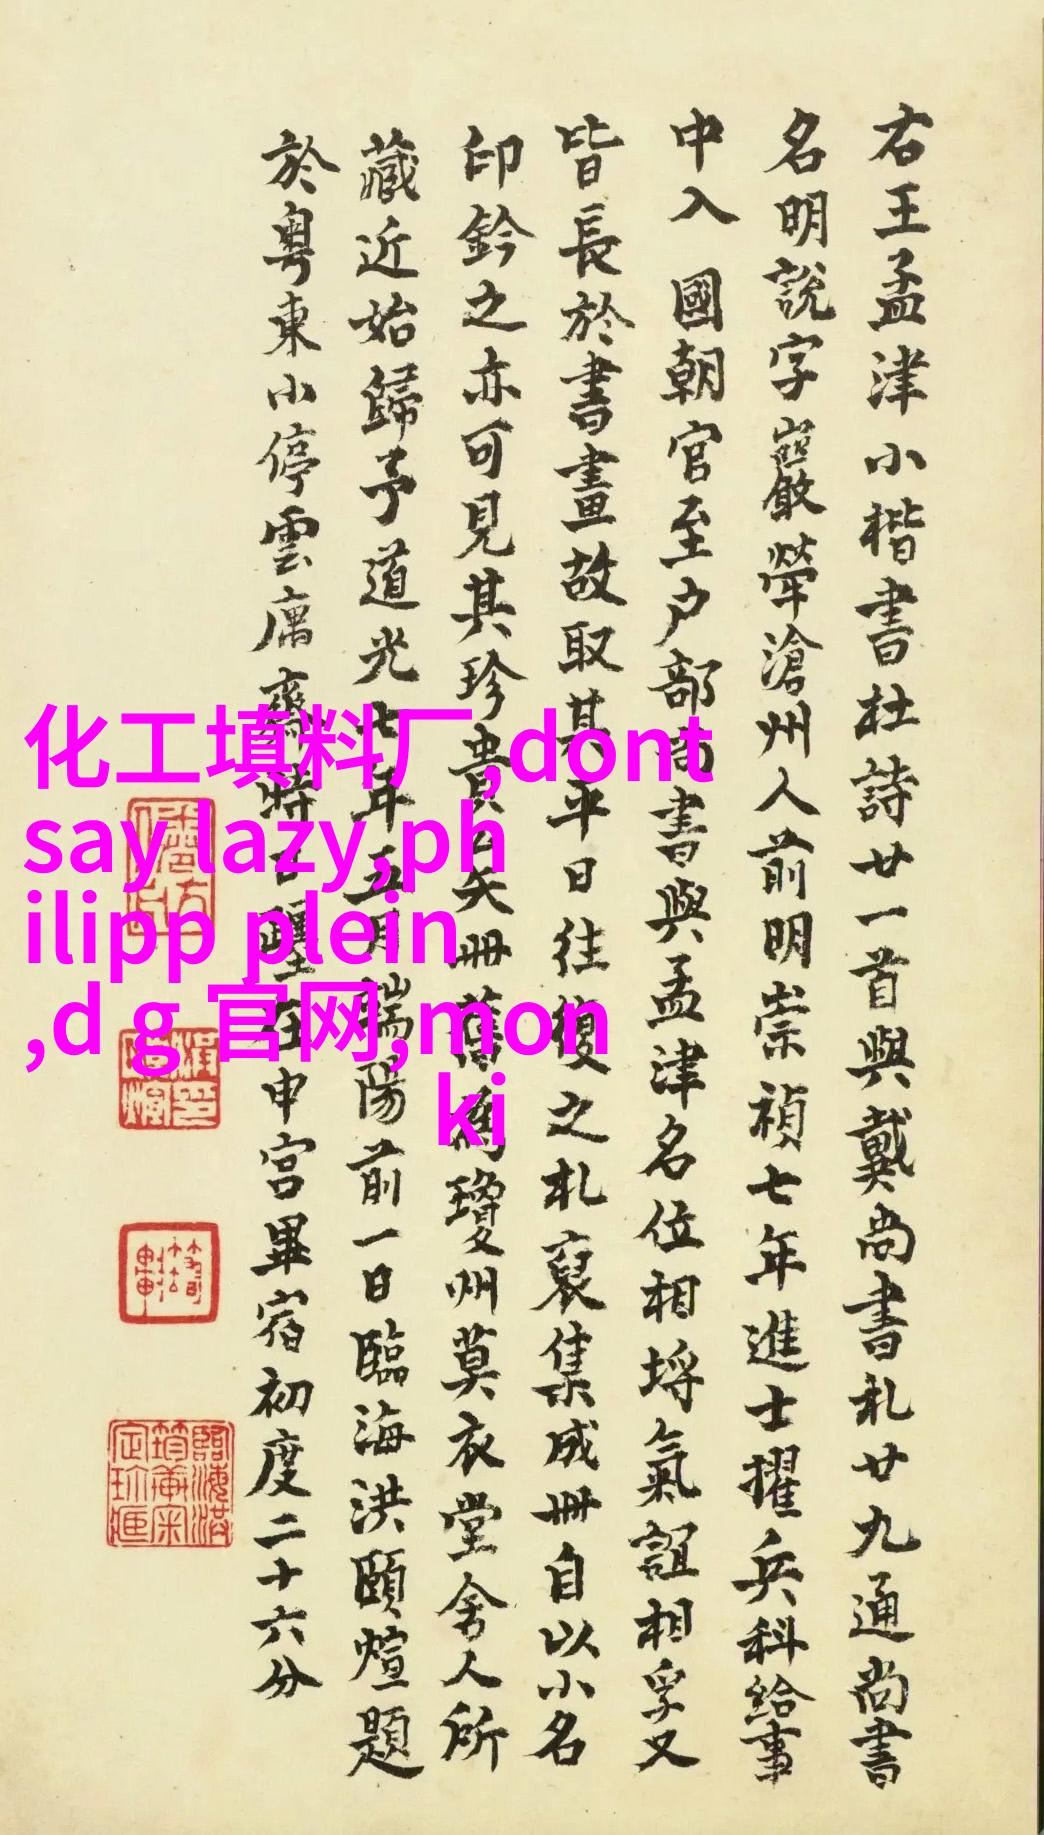 右王孟津小楷書杜詩廿一首與戴尚書札廿九通尚書
名明說字巖犖滄州人前明崇禎七年進士擢兵科給事
中入國朝官至户部尚書與孟津名位相埒氣誼相孚又
皆長於書畫故取其平日往復之札裒集成冊自以小名
印鈐之亦可見其珍貴矣冊舊為瓊州莫衣堂舍人所
藏近始歸予道光七年五月端陽前一日臨海洪頤煊題
於粵東小停雲庽齋時日躔在申宮畢宿初度二十六分
化工填料厂,dont
say lazy,ph
ilipp plein
,d g 官网,mon
ki